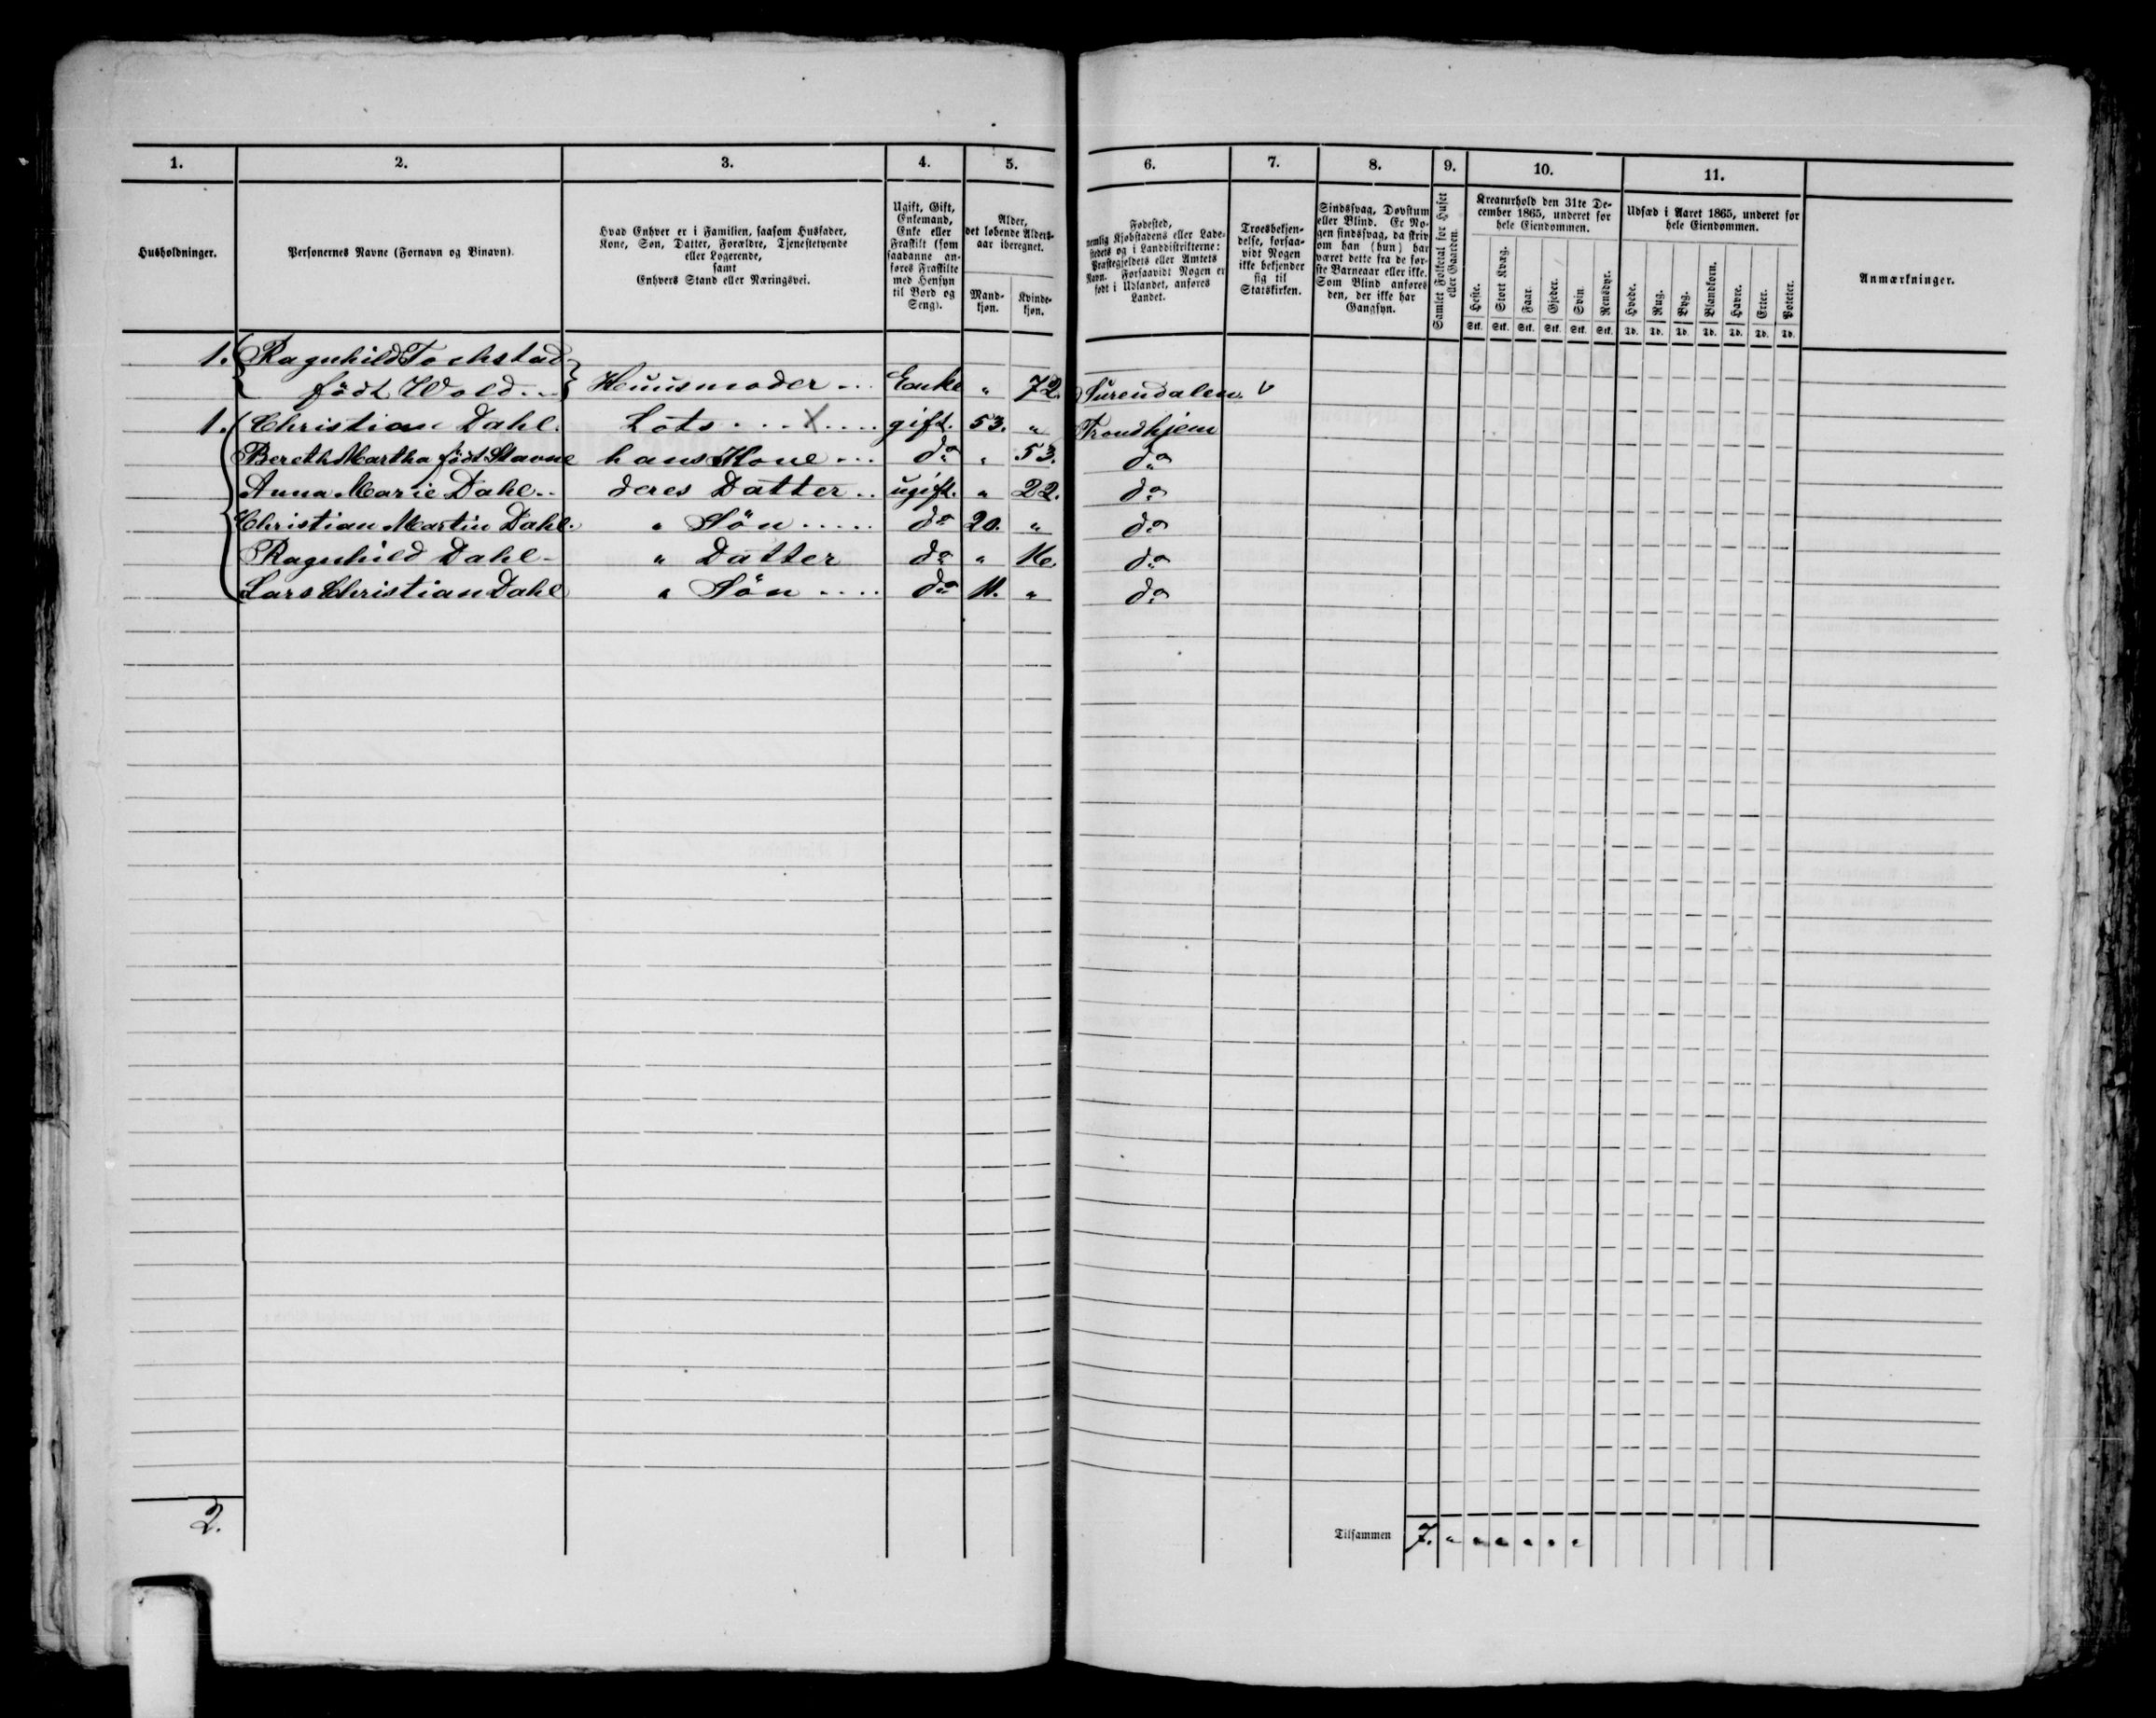 1. 2. 3. 4. 5. 6. 7. 8. 9. 10. 11.
Husholdninger.
Personernes Navne (Fornavn og Binavn).
Hvad Enhver er i Familien, saasom Husfader,
Kone, Søn, Datter, Forældre, Tjenestetyende
eller Logerende,
samt
Enhvers Stand eller Næringsvei.
Ugift, Gift,
Enkemand,
Enke eller
Fraskilt (som
saadanne an-
føres Fraskilte
med Hensyn
til Bord og
Seng).
Alder,
det løbende Alders-
aar iberegnet.
Mand-
kjøn.
Kvinde-
kjøn.
Fødested,
nemlig Kjøbstadens eller Lade-
stedets og i Landdistrikterne:
Præstegjeldets eller Amtets
Navn. Forsaavidt Nogen er
født i Udlandet, anføres
Landet.
Troesbekjen-
delse, forsaa-
vidt Nogen
ikke bekjender
sig til
Statskirken.
Sindssvag, Døvstum
eller Blind. Er No-
gen sindssvag, da skriv
om han (hun) har
været dette fra de før-
ste Barneaar eller ikke.
Som Blind anføres
den, der ikke har
Gangsyn.
Samlet Folketal for Huset
eller Gaarden.
Kreaturhold den 31te De-
cember 1865, underet for
hele Eiendommen.
Heste. Stort Kvæg. Faar. Gjeder. Svin. Rensdyr.
Stk. Stk. Stk. Stk. Stk. Stk.
Udsæd i Aaret 1865, underet for
hele Eiendommen.
Hvede. Rug. Byg. Blandkorn. Havre. Erter. Poteter.
Td. Td. Td. Td. Td. Td. Td.
Anmærkninger.
1. Ragnhild Tochstad
født Wold Huusmoder Enke " 72. Surendalen v
1. Christian Dahl. Lots X gift. 53. " Trondhjem
Bereth Martha født Stavne hans Kone do " 53. do
Anna Marie Dahl deres Datter ugift. " 22. do
Christian Martin Dahl. " Søn do 20. " do
Ragnhild Dahl " Datter do " 16. do
Lars Christian Dahl " Søn do 11. " do
2.
Tilsammen 7. " " " " " "